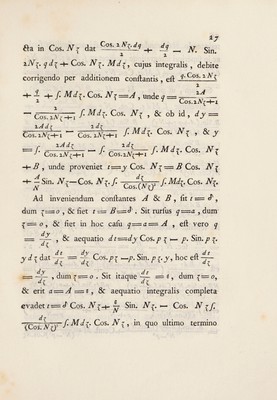 27
cta in Cos. Nζ dat Cos. 2Nζ. dq / 2 + dq / 2 — N. Sin.
2Nζ. qdζ + Cos. Nζ. Mdζ, cujus integralis, debite
corrigendo per additionem constantis, est q. Cos. 2Nζ / 2
+ q / 2 + ʃ. Mdζ. Cos. Nζ = A, unde q = 2A / Cos. 2Nζ+1
— 2 / Cos. 2Nζ+1 ʃ. Mdζ. Cos. Nζ, & ob id, dy =
2Adζ / Cos. 2Nζ+1 — 2dζ / Cos. 2Nζ+1 ʃ. Mdζ. Cos. Nζ, & y
= ʃ. 2Adζ / Cos. 2Nζ+1 — ʃ. 2dζ / Cos. 2Nζ+1 ʃ. Mdζ. Cos. Nζ
+ B, unde proveniet t=y Cos. Nζ = B Cos. Nζ
+ A / N Sin. Nζ—Cos. Nζ. ʃ. dζ / Cos. (Nζ)² ʃ. Mdζ. Cos. Nζ.
Ad inveniendum constantes A & B, sit t = δ,
dum ζ=0, & fiet t = B=δ. Sit rursus q=a, dum
ζ=0, & fiet in hoc casu q=a=A, est vero q
= dy / dζ, & aequatio dt=dy Cos. pζ — p. Sin. pζ.
ydζ dat dt / dζ = dy / dζ Cos. pζ —p. Sin. pζ. y, hoc est dt / dζ
= dy / dζ, dum ζ=0. Sit itaque dt / dζ = ε, dum ζ=0,
& erit a=A=ε, & aequatio integralis completa
evadet t=δ Cos. Nζ+ ε / N Sin. Nζ.— Cos. Nζ ʃ.
dζ / (Cos. Nζ)² ʃ. Mdζ. Cos. Nζ, in quo ultimo termino